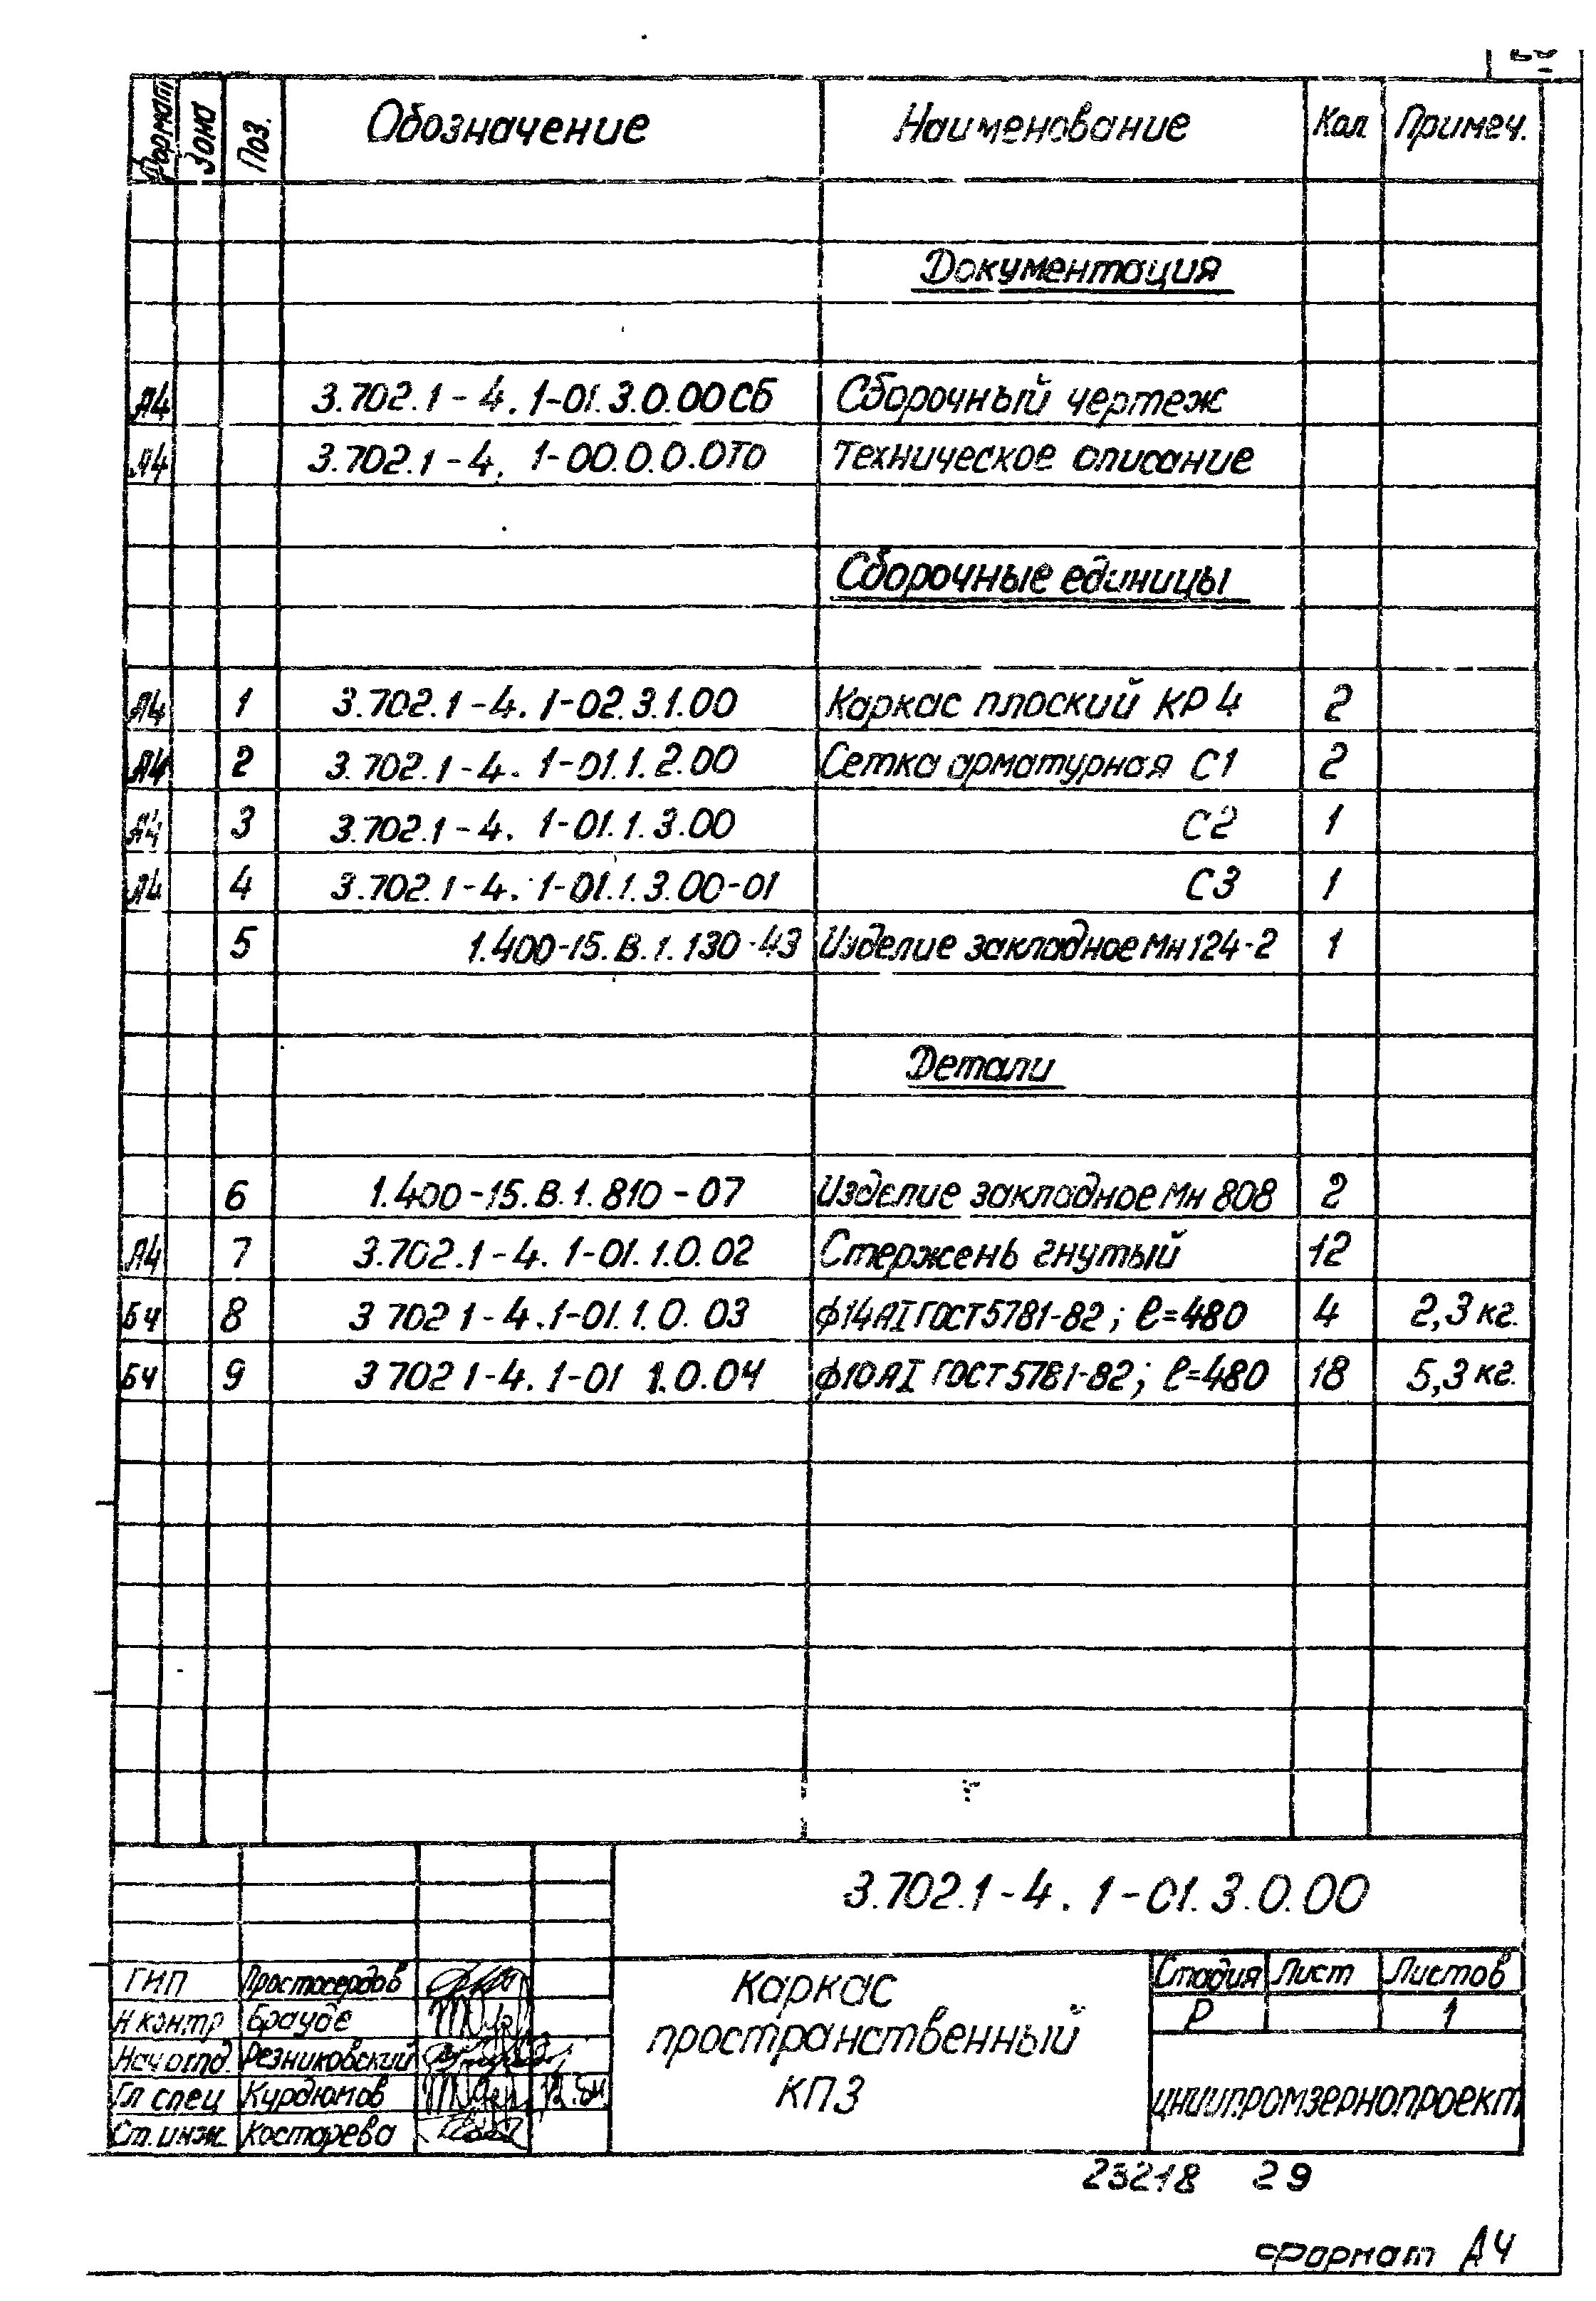 Формат Зона Поз. Обозначение Наименование Кол Примеч.
Документация
А4 3.702.1-4.1-01.3.0.00СБ Сборочный чертеж
А4 3.702.1-4.1-00.0.0.0ТО Техническое описание
Сборочные единицы
А4 1 3.702.1-4.1-02.3.1.00 Каркас плоский КР4 2
А4 2 3.702.1-4.1-01.1.2.00 Сетка арматурная С1 2
А4 3 3.702.1-4.1-01.1.3.00 С2 1
А4 4 3.702.1-4.1-01.1.3.00-01 С3 1
5 1.400-15.В.1.130-43 Изделие закладное Мн124-2 1
Детали
6 1.400-15.В.1.810-07 Изделие закладное Мн 808 2
А4 7 3.702.1-4.1-01.1.0.02 Стержень гнутый 12
БЧ 8 3 702 1-4.1-01.1.0.03 ф14АI ГОСТ5781-82; ℓ=480 4 2,3 кг.
БЧ 9 3 702 1-4.1-01 1.0.04 ф10АI ГОСТ5781-82; ℓ=480 18 5,3 кг.
3.702.1-4.1-01.3.0.00
ГИП Простосердов
Н контр Брауде
Нач отд. Резниковский
Гл спец Курдюмов
Ст. инж. Костарева
Каркас
пространственный
КП3
Стадия Лист Листов
Р 1
ЦНИИпромзернопроект
23218 29
формат А4